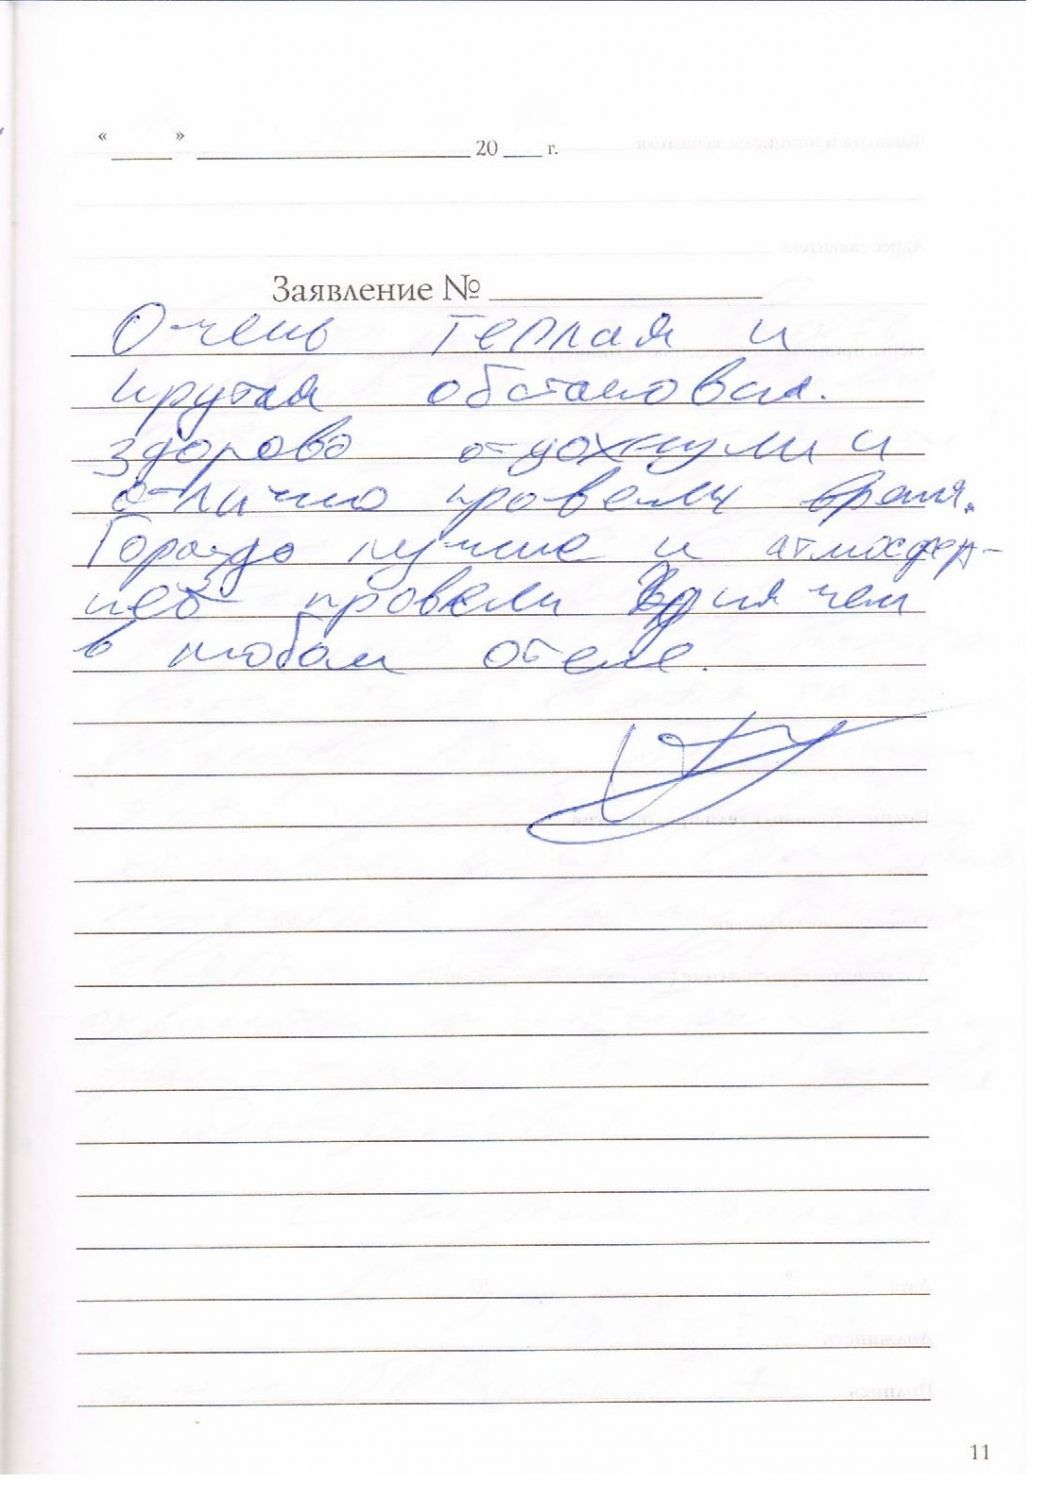 « » 20 г.
Заявление №
Очень теплая и
крутая обстановка.
Здорово отдохнули и
отлично провели время.
Гораздо лучше и атмосфер-
ней провели время чем
в любом отеле.
11